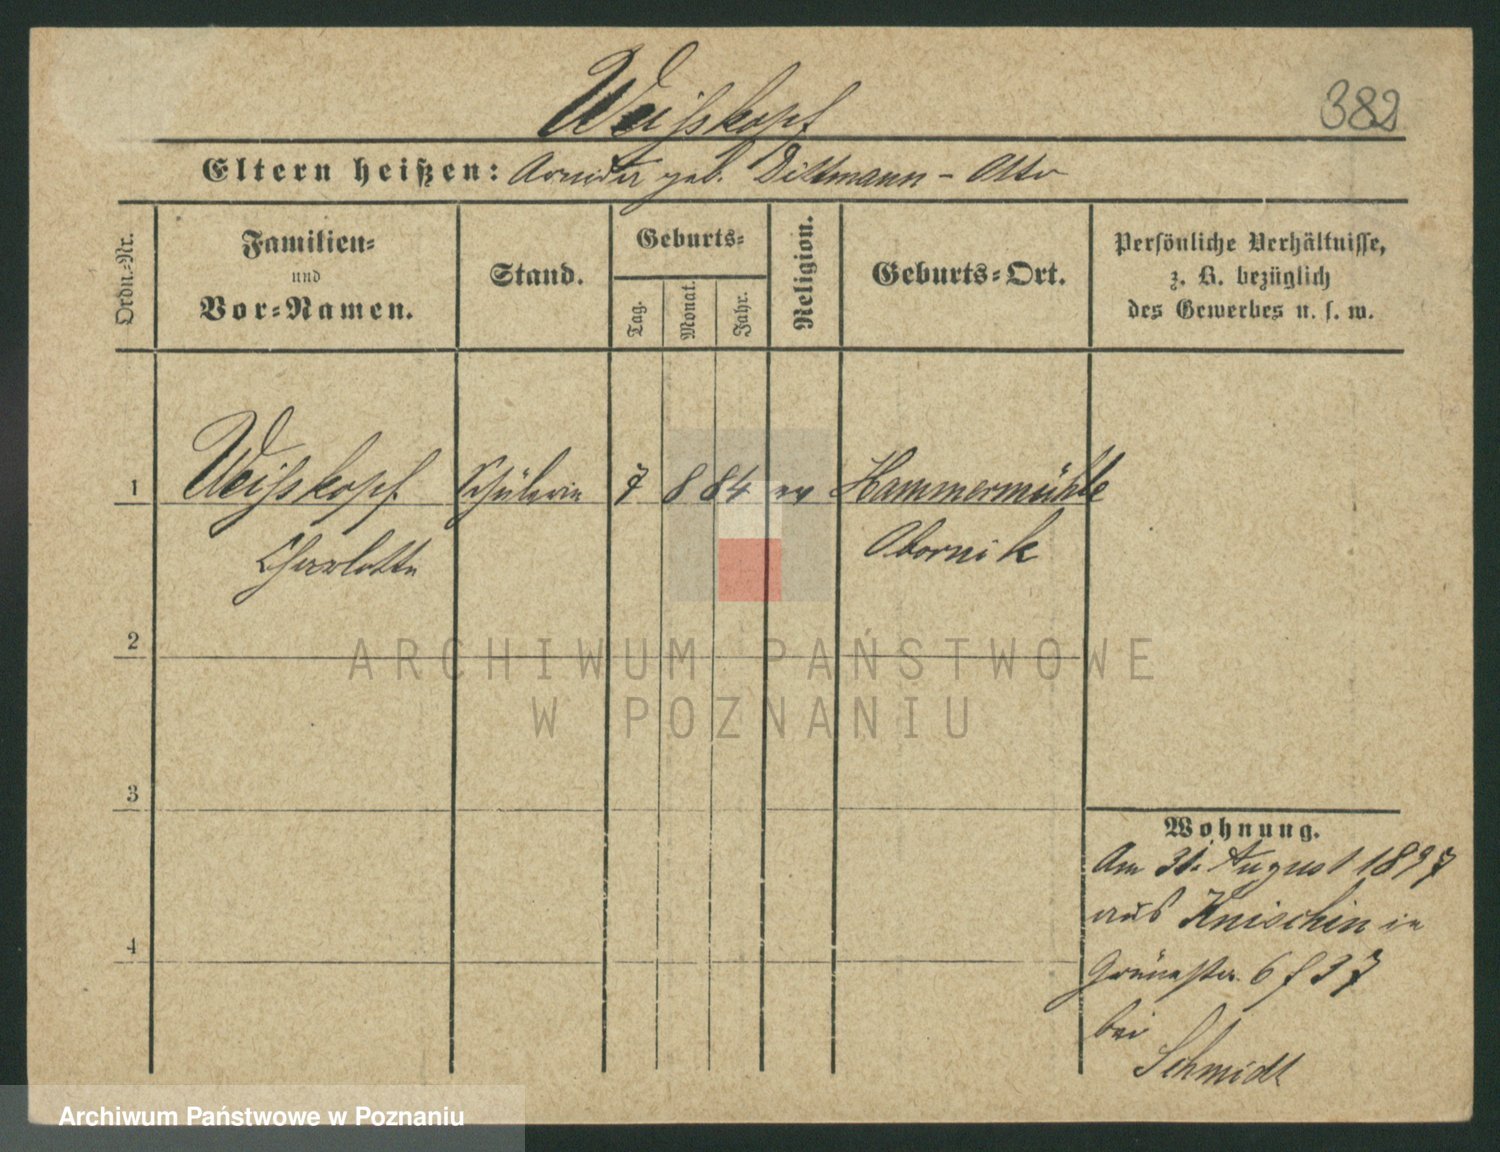 Weißkopf
382
Eltern heißen: geb. Dittmann - Otto
Ordn.-Nr.
Familien-
und
Vor-Namen.
Stand.
Geburts-
Tag.
Monat.
Jahr.
Religion.
Geburts-Ort.
Persönliche Verhältnisse,
z. B. bezüglich
des Gewerbes u. s. w.
1 Weißkopf Schülerin 7 8 84 ev Hammermühle
Charlotte Obornik
2
3
4
Wohnung.
Am 31. August 1897
aus Knischin in
Grünestr. 6 f 37
bei
Schmidt
ARCHIWUM PAŃSTWOWE
W POZNANIU
Archiwum Państwowe w Poznaniu